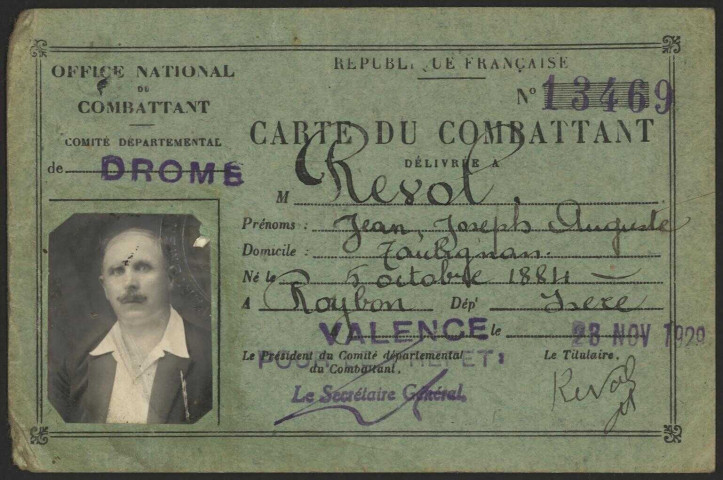 OFFICE NATIONAL
DU
COMBATTANT
COMITÉ DÉPARTEMENTAL
de DROME
RÉPUBLIQUE FRANÇAISE
N° 13469
CARTE DU COMBATTANT
DÉLIVRÉE A
M Revol
Prénoms : Jean Joseph Auguste
Domicile : Taulignan.
Né le 5 octobre 1884
A Roybon Dépt Isère
VALENCE le 28 NOV 1929
Le Président du Comité départemental
du Combattant,
POUR LE PREFET:
Le Secrétaire Général,
Le Titulaire,
Revol